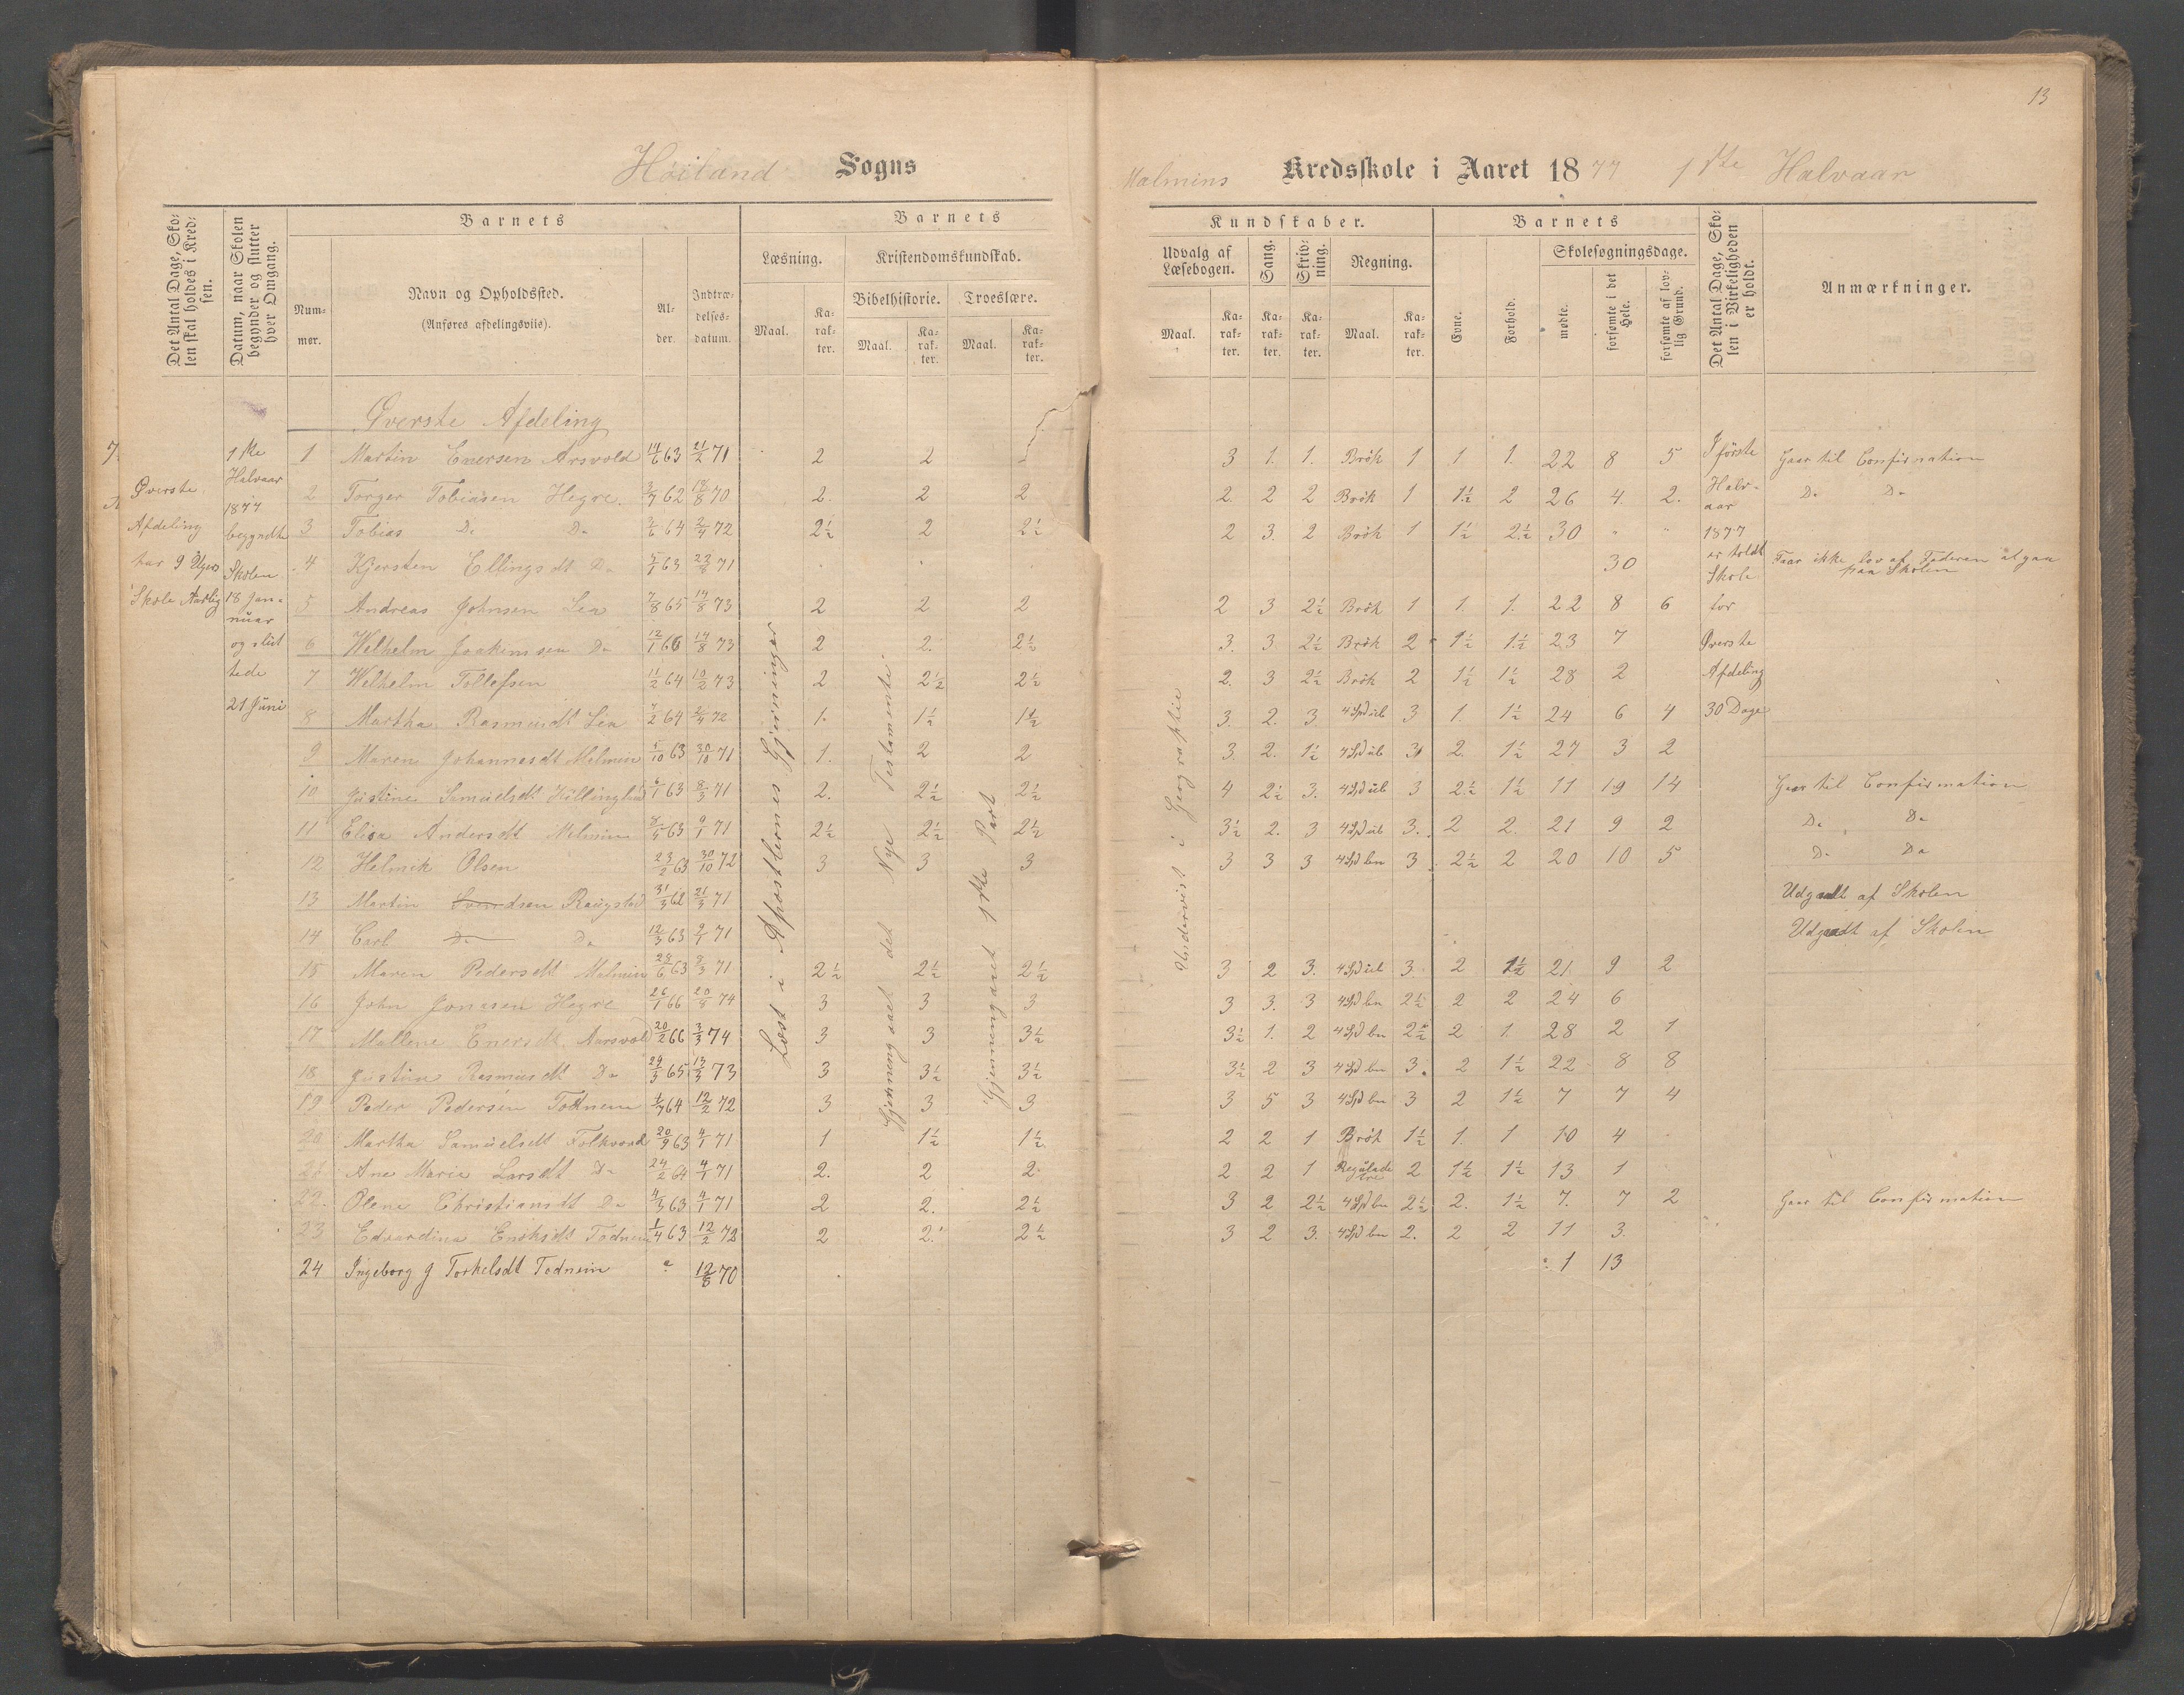 13
Høiland Sogns
Malmins Kredsskole i Aaret 1877 1ste Halvaar
Det Antal Dage, Skolen skal holdes i Kredsen.
Datum, naar Skolen begynder og slutter hver Omgang.
Barnets
Nummer.
Navn og Opholdssted.
(Anføres afdelingsviis).
Alder.
Indtrædelsesdatum.
Barnets
Læsning.
Kristendomskundskab.
Bibelhistorie. Troeslære.
Maal. Karakter. Maal. Karakter. Maal. Karakter.
Kundskaber.
Udvalg af Læsebogen.
Sang.
Skrivning.
Regning.
Maal. Karakter. Karakter. Karakter. Maal. Karakter.
Barnets
Evne.
Forhold.
Skolesøgningsdage.
mødte.
forsømte i det Hele.
forsømte af lovlig Grund.
Det Antal Dage, Skolen i Virkeligheden er holdt.
Anmærkninger.
Øverste Afdeling
7.
Øverste
Afdeling
har 9 Ugers
Skole Aarlig
1ste
Halvaar
1877
begyndte
Skolen
18 Januar
og sluttede
21 Juni
Læst i Apostlernes Gjerninger
Gjennemgaaet det Nye Testamente
Gjennemgaaet 1ste Part
Undervist i Geographie
I første
Halvaar
1877
er holdt
Skole
for
Øverste
Afdeling
30 Dage
1 Martin Enersen Arsvold 14/6 63 21/2 71 2 2 3 1. 1. Brøk 1 1 1. 22 8 5 Gaar til Confirmation
2 Torger Tobiasen Hegre 3/7 62 18/8 70 2. 2 2 2. 2 2 Brøk 1 1½ 2 26 4. 2. Do Do
3 Tobias Do Do 2/6 64 2/4 72 2½ 2 2½ 2 3. 2 Brøk 1 1½ 2½ 30 " "
4 Kjersten Ellingsdt Do 5/1 63 22/8 71 30 Faar ikke lov af Faderen at gaa paa Skolen
5 Andreas Johnsen Lea 7/8 65 14/8 73 2 2 2 2 3 2½ Brøk 1 1. 1. 22 8 6
6 Welhelm Joakimsen Do 12/1 66 14/8 73 2 2. 2½ 3. 3 2½ Brøk 2 1½ 1½ 23 7
7 Welhelm Tollefsen 11/2 64 10/2 73 2 2½ 2½ 2. 3 2½ Brøk 2 1½ 1½ 28 2
8 Martha Rasmusdt Lea 7/2 64 2/4 72 1. 1½ 1½ 3. 2. 3 4 Spd ub 3 1. 1½ 24 6 4
9 Maren Johannesdt Malmin 5/10 63 30/10 71 1. 2 2 3. 2. 1½ 4 Spd ub 3 2. 1½ 27 3 2
10 Justine Samuelsdt 6/1 63 8/3 71 2. 2½ 2½ 4 2½ 3. 4 Spd ub 3 2½ 1½ 11 19 14 Gaar til Confirmation
11 Elisa Andersdt Malmin 8/5 63 9/1 71 2½ 2½ 2½ 3½ 2. 3 4 Spd ub 3. 2 2. 21 9 2 Do Do
12 Helmik Olsen 23/2 63 30/10 72 3 3 3 3 3 3 4 Spd bn 3. 2½ 2 20 10 5 Do Do
13 Martin Svendsen Raugstad 31/3 62 21/3 71 Udgaadt af Skolen
14 Carl Do Do 12/3 63 9/1 71 Udgaadt af Skolen
15 Maren Pedersdt Malmin 28/6 63 8/3 71 2½ 2½ 2½ 3 2 3. 4 Spd ub 3 2 1½ 21 9 2
16 John Jonasen Hegre 26/1 66 20/8 74 3 3 3 3 3. 3 4 Spd bn 2½ 2 2 24 6
17 Mallene Enersdt Aarsvold 20/2 66 3/3 74 3 3 3½ 3½ 1. 2 4 Spd bn 2½ 2 1. 28 2 1
18 Justine Rasmusdt Do 29/3 65 13/3 73 3 3½ 3½ 3½ 2 3 4 Spd bn 3. 2 1½ 22 8 8
19 Peder Pedersen Todnem 1/7 64 12/2 72 3 3 3 3 5 3 4 Spd bn 3 2 1½ 7 7 4
20 Martha Samuelsdt Folkvord 20/9 63 4/1 71 1 1½ 1½ 2 2 1 Brøk 1½ 1. 1 10 4
21 Ane Marie Larsdt Do 24/2 64 4/1 71 2. 2 2. 2 2 1 Reguladetre 2 1½ 1½ 13 1
22. Olene Christiansdt Do 4/3 63 4/1 71 2 2. 2½ 3 2 2½ 4 Spd bn 2½ 2. 1½ 7. 7 2 Gaar til Confirmation
23 Edvardine Enoksdt Todnem 1/4 63 12/2 72 2 2. 2½ 3 2 3. 4 Spd bn 2. 2 2 11 3.
24 Ingeborg J Torkelsdt Todnem 12/8 70 1 13